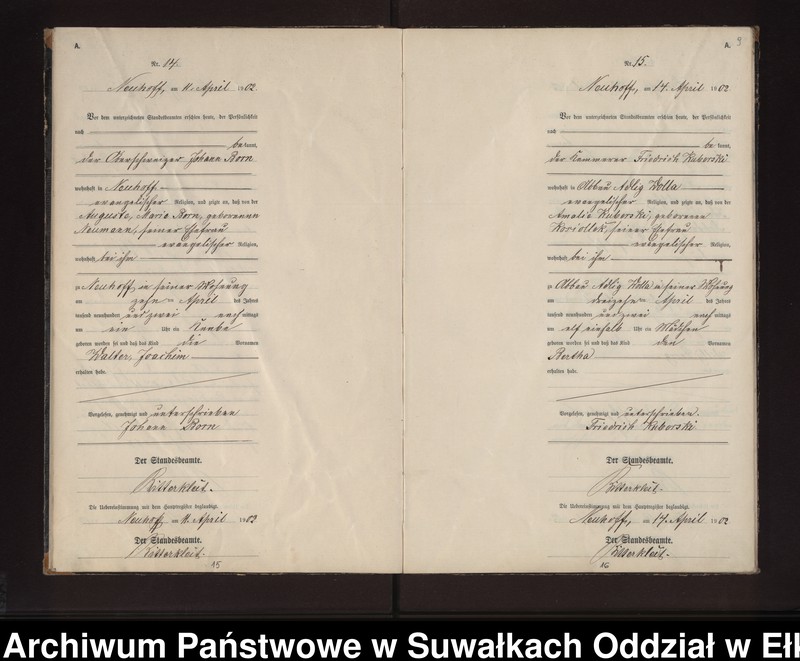 A.
Nr. 14.
Neuhoff, am 11. April 1902.
Vor dem unterzeichneten Standesbeamten erschien heute, der Persönlichkeit
nach
bekannt,
der Oberschweizer Johann Born
wohnhaft in Neuhoff
evangelischer Religion, und zeigte an, daß von der
Auguste, Marie Born, geborenen
Neumann, seiner Ehefrau
evangelischer Religion,
wohnhaft bei ihm
zu Neuhoff, in seiner Wohnung
am zehnten April des Jahres
tausend neunhundert und zwei nachmittags
um ein Uhr ein Knabe
geboren worden sei und daß das Kind die Vornamen
Walter, Joachim
erhalten habe.
Vorgelesen, genehmigt und unterschrieben
Johann Born
Der Standesbeamte.
Ritterkleit.
Die Uebereinstimmung mit dem Hauptregister beglaubigt.
Neuhoff, am 11. April 1903
Der Standesbeamte.
Ritterkleit.
15
A. 9
Nr. 15.
Neuhoff, am 14. April 1902
Vor dem unterzeichneten Standesbeamten erschien heute, der Persönlichkeit
nach
bekannt,
der Kämmerer Friedrich Kuborski
wohnhaft in Abbau Adlig Wolla
evangelischer Religion, und zeigte an, daß von der
Amalie Kuborski, geborenen
Koriollek, seiner Ehefrau
evangelischer Religion,
wohnhaft bei ihm
zu Abbau Adlig Wolla in seiner Wohnung
am dreizehnten April des Jahres
tausend neunhundert und zwei nachmittags
um elf einhalb Uhr ein Mädchen
geboren worden sei und daß das Kind den Vornamen
Bertha
erhalten habe.
Vorgelesen, genehmigt und unterschrieben.
Friedrich Kuborski
Der Standesbeamte.
Ritterkleit.
Die Uebereinstimmung mit dem Hauptregister beglaubigt.
Neuhoff, am 14. April 1902
Der Standesbeamte.
Ritterkleit.
16
Archiwum Państwowe w Suwałkach Oddział w Ełk